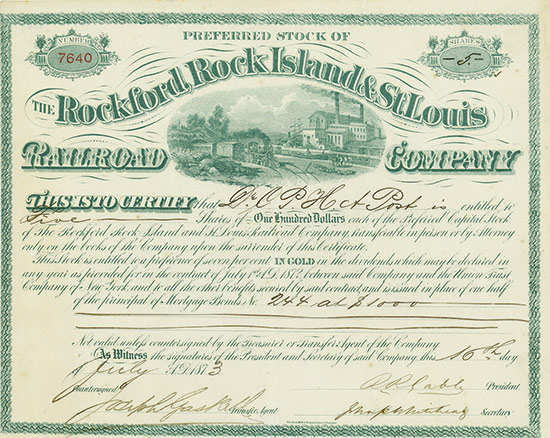 PREFERRED STOCK OF
NUMBER
7640
SHARES
5
THE Rockford, Rock Island & St. Louis
RAILROAD COMPANY
THIS IS TO CERTIFY that Dr. C. P. H. A. Post is entitled to
Five Shares of One Hundred Dollars each of the Preferred Capital Stock
of the Rockford Rock Island and St. Louis Railroad Company, transferable in person or by Attorney
only on the books of the Company upon the surrender of this Certificate.
This Stock is entitled to a preference of seven per cent IN GOLD in the dividends which may be declared in
any year as provided for in the contract of July 1st A.D. 1872 between said Company and the Union Trust
Company of New York, and to all the other benefits secured by said contract, and is issued in place of one half
of the principal of Mortgage Bonds No. 244 at $1000
Not valid unless countersigned by the Treasurer or Transfer Agent of the Company
As Witness the signatures of the President and Secretary of said Company this 16th day
of July A.D. 1873
Countersigned
Joseph Gaskell Transfer Agent
President
Secretary